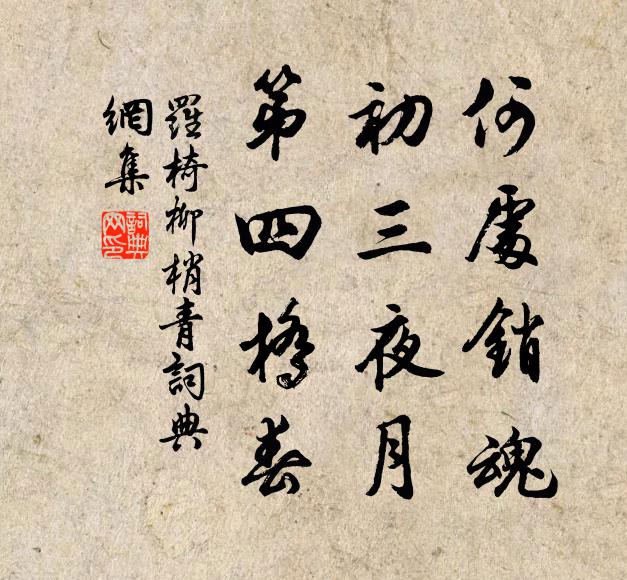 何處銷魂
初三夜月
第四橋春
羅椅柳梢青詞典
網集
詞典網印